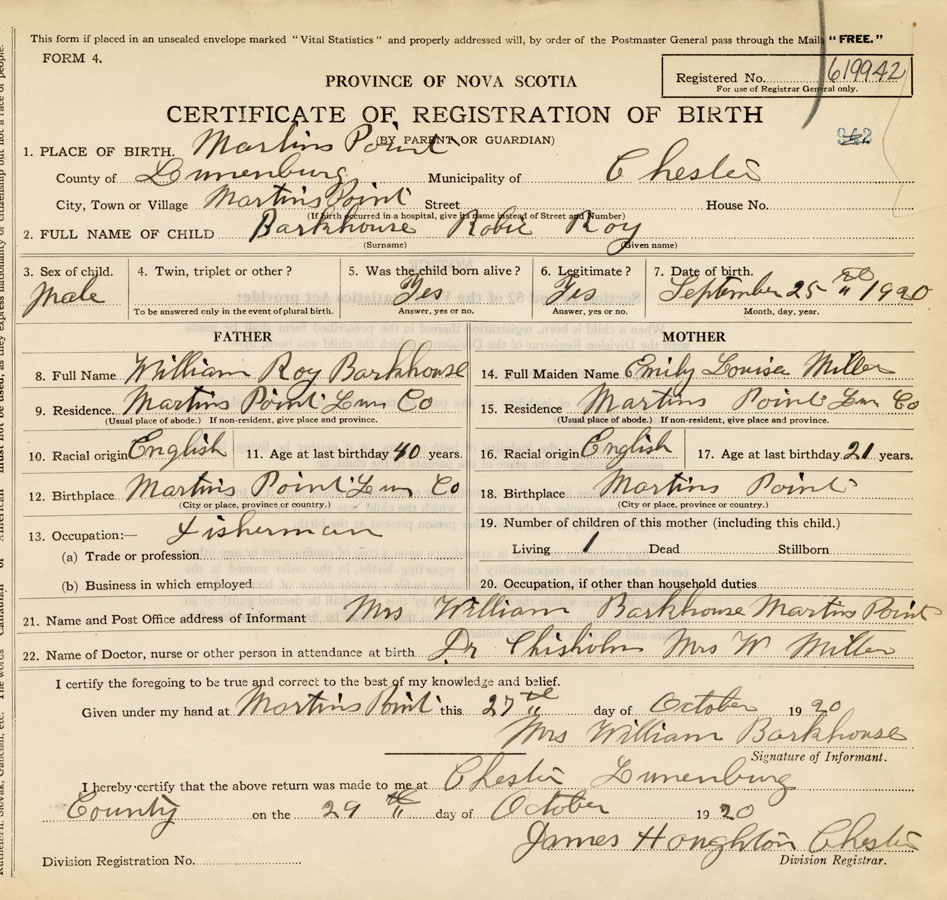 This form if placed in an unsealed envelope marked "Vital Statistics" and properly addressed will, by order of the Postmaster General pass through the Mails "FREE."
FORM 4.
Registered No. 619942
For use of Registrar General only.
PROVINCE OF NOVA SCOTIA
CERTIFICATE OF REGISTRATION OF BIRTH
(BY PARENT OR GUARDIAN)
942
1. PLACE OF BIRTH. Martins Point
County of Lunenburg Municipality of Chester
City, Town or Village Martins Point Street House No.
(If birth occurred in a hospital, give its name instead of Street and Number)
2. FULL NAME OF CHILD Barkhouse Robie Roy
(Surname) (Given name)
3. Sex of child. 4. Twin, triplet or other? 5. Was the child born alive? 6. Legitimate? 7. Date of birth.
Male Yes Yes September 25 1920
To be answered only in the event of plural birth. Answer, yes or no. Answer, yes or no. Month, day, year.
FATHER MOTHER
8. Full Name William Roy Barkhouse 14. Full Maiden Name Emily Louisa Miller
9. Residence. Martins Point Lun Co 15. Residence Martins Point Lun Co
(Usual place of abode.) If non-resident, give place and province. (Usual place of abode.) If non-resident, give place and province.
10. Racial origin English 11. Age at last birthday 40 years. 16. Racial origin English 17. Age at last birthday 21 years.
12. Birthplace Martins Point Lun Co 18. Birthplace Martins Point
(City or place, province or country.) (City or place, province or country.)
13. Occupation:— Fisherman 19. Number of children of this mother (including this child.)
(a) Trade or profession Living 1 Dead Stillborn
(b) Business in which employed 20. Occupation, if other than household duties
21. Name and Post Office address of Informant Mrs William Barkhouse Martins Point
22. Name of Doctor, nurse or other person in attendance at birth Dr Chisholm Mrs W Miller
I certify the foregoing to be true and correct to the best of my knowledge and belief.
Given under my hand at Martins Point this 27th day of October 1920
Mrs William Barkhouse
Signature of Informant.
I hereby certify that the above return was made to me at Chester Lunenburg
County on the 29th day of October 1920
James Houghton Chester
Division Registration No. Division Registrar.